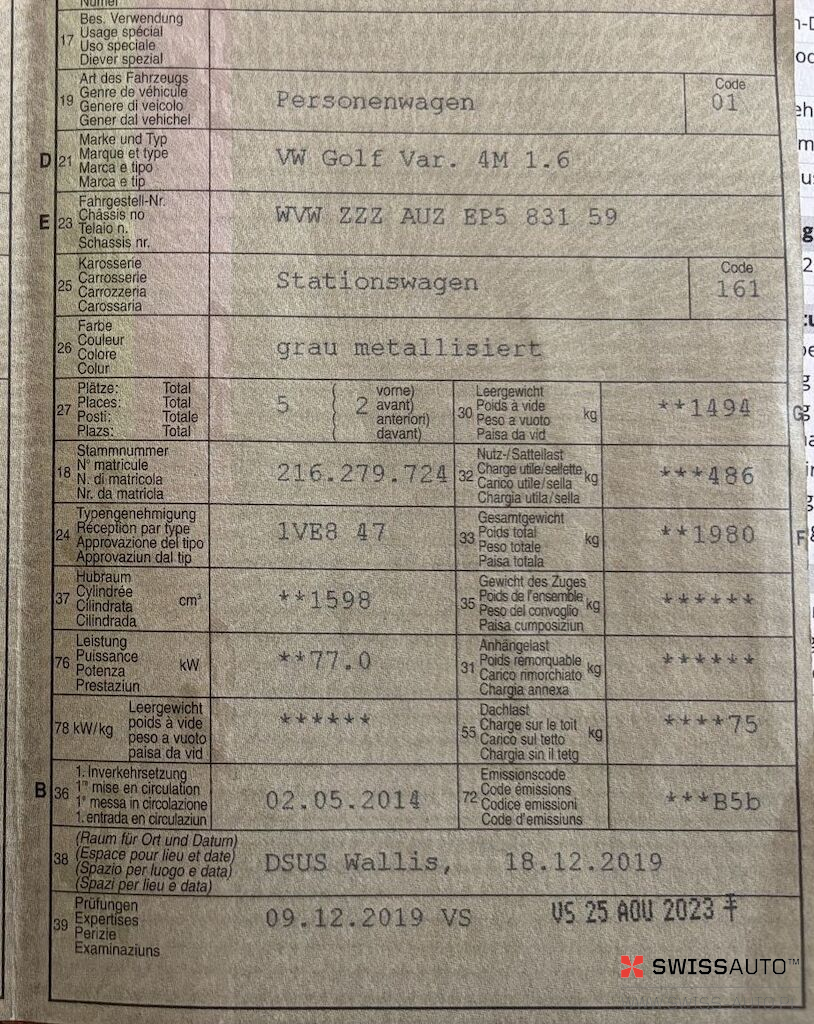 Numer
17
Bes. Verwendung
Usage spécial
Uso speciale
Diever spezial
19
Art des Fahrzeugs
Genre de véhicule
Genere di veicolo
Gener dal vehichel
Personenwagen
Code
01
D 21
Marke und Typ
Marque et type
Marca e tipo
Marca e tip
VW Golf Var. 4M 1.6
E 23
Fahrgestell-Nr.
Châssis no
Telaio n.
Schassis nr.
WVW ZZZ AUZ EP5 831 59
25
Karosserie
Carrosserie
Carrozzeria
Carossaria
Stationswagen
Code
161
26
Farbe
Couleur
Colore
Colur
grau metallisiert
27
Plätze: Total
Places: Total
Posti: Totale
Plazs: Total
5 ( 2 vorne)
( avant)
( anteriori)
( davant)
30
Leergewicht
Poids à vide
Peso a vuoto
Paisa da vid
kg
**1494
G
18
Stammnummer
N° matricule
N. di matricola
Nr. da matricla
216.279.724
32
Nutz-/Sattellast
Charge utile/sellette
Carico utile/sella
Chargia utila/sella
kg
***486
24
Typengenehmigung
Réception par type
Approvazione del tipo
Approvaziun dal tip
1VE8 47
33
Gesamtgewicht
Poids total
Peso totale
Paisa totala
kg
**1980
F
37
Hubraum
Cylindrée
Cilindrata
Cilindrada
cm³
**1598
35
Gewicht des Zuges
Poids de l'ensemble
Peso del convoglio
Paisa cumposiziun
kg
******
76
Leistung
Puissance
Potenza
Prestaziun
kW
**77.0
31
Anhängelast
Poids remorquable
Carico rimorchiato
Chargia annexa
kg
******
78 kW/kg
Leergewicht
poids à vide
peso a vuoto
paisa da vid
******
55
Dachlast
Charge sur le toit
Carico sul tetto
Chargia sin il tetg
kg
****75
B 36
1. Inverkehrsetzung
1re mise en circulation
1a messa in circolazione
1. entrada en circulaziun
02.05.2014
72
Emissionscode
Code émissions
Codice emissioni
Code d'emissiuns
***B5b
38
(Raum für Ort und Datum)
(Espace pour lieu et date)
(Spazio per luogo e data)
(Spazi per lieu e data)
DSUS Wallis, 18.12.2019
39
Prüfungen
Expertises
Perizie
Examinaziuns
09.12.2019 VS
VS 25 AOU 2023
SWISSAUTO™